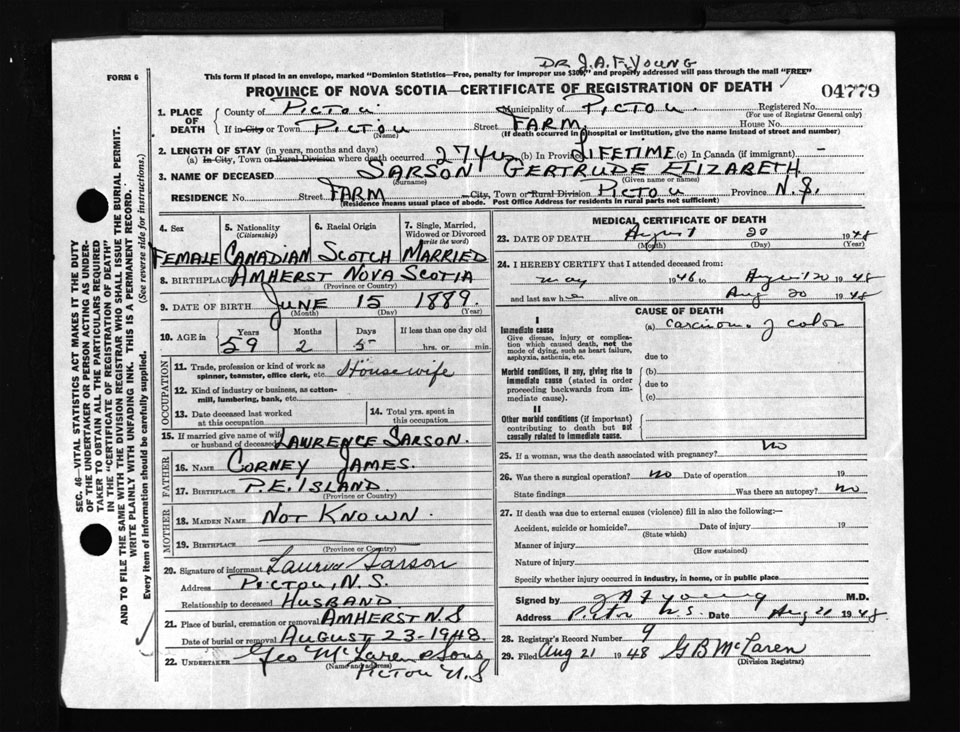 DR J.A.F. YOUNG
FORM 6
This form if placed in an envelope, marked "Dominion Statistics—Free, penalty for improper use $300," and property addressed will pass through the mail "FREE"
PROVINCE OF NOVA SCOTIA—CERTIFICATE OF REGISTRATION OF DEATH
04779
1. PLACE OF DEATH
County of PICTOU Municipality of PICTOU Registered No.
(For use of Registrar General only)
If in City or Town PICTOU Street FARM House No.
(Name) (If death occurred in hospital or institution, give the name instead of street and number)
2. LENGTH OF STAY (in years, months and days)
(a) In City, Town or Rural Division where death occurred 27 yrs (b) In Province LIFETIME (c) In Canada (if immigrant) –
3. NAME OF DECEASED SARSON GERTRUDE ELIZABETH
(Surname) (Given name or names)
RESIDENCE No. Street FARM City, Town or Rural Division PICTOU Province N.S.
(Residence means usual place of abode. Post Office Address for residents in rural parts not sufficient)
4. Sex 5. Nationality (Citizenship) 6. Racial Origin 7. Single, Married, Widowed or Divorced (write the word)
FEMALE CANADIAN SCOTCH MARRIED
8. BIRTHPLACE AMHERST NOVA SCOTIA
(Province or Country)
9. DATE OF BIRTH JUNE 15 1889.
(Month) (Day) (Year)
10. AGE in Years Months Days If less than one day old
59 2 5 hrs. or min.
OCCUPATION
11. Trade, profession or kind of work as spinner, teamster, office clerk, etc. Housewife
12. Kind of industry or business, as cotton-mill, lumbering, bank, etc.
13. Date deceased last worked at this occupation
14. Total yrs. spent in this occupation
15. If married give name of wife or husband of deceased LAWRENCE SARSON.
FATHER
16. NAME CORNEY JAMES.
17. BIRTHPLACE P.E. ISLAND
(Province or Country)
MOTHER
18. MAIDEN NAME NOT KNOWN.
19. BIRTHPLACE
(Province or Country)
20. Signature of informant Sarson
Address PICTOU, N.S.
Relationship to deceased HUSBAND
21. Place of burial, cremation or removal AMHERST N.S
Date of burial or removal AUGUST 23-1948.
22. UNDERTAKER Geo McLaren & Sons
(Name and address)
PICTOU N.S
MEDICAL CERTIFICATE OF DEATH
23. DATE OF DEATH August 20 1948
(Month) (Day) (Year)
24. I HEREBY CERTIFY that I attended deceased from:
may 1946 to August 20 1948
and last saw her alive on Aug 20 1948
CAUSE OF DEATH
I
Immediate cause (a) carcinoma of colon
Give disease, injury or complication which caused death, not the mode of dying, such as heart failure, asphyxia, asthenia, etc.
due to
Morbid conditions, if any, giving rise to immediate cause (stated in order proceeding backwards from immediate cause).
(b)
due to
(c)
II
Other morbid conditions (if important) contributing to death but not causally related to immediate cause.
25. If a woman, was the death associated with pregnancy? no
26. Was there a surgical operation? no Date of operation 19
State findings Was there an autopsy? no
27. If death was due to external causes (violence) fill in also the following:—
Accident, suicide or homicide? Date of injury 19
(State which)
Manner of injury
(How sustained)
Nature of injury
Specify whether injury occurred in industry, in home, or in public place
Signed by J A F Young M.D.
Address Pictou N.S. Date Aug 20 1948
28. Registrar's Record Number 9
29. Filed Aug 21 1948 G B McLaren
(Division Registrar)
SEC. 46—VITAL STATISTICS ACT MAKES IT THE DUTY
OF THE UNDERTAKER OR PERSON ACTING AS UNDERTAKER TO OBTAIN ALL THE PARTICULARS REQUIRED
IN THE "CERTIFICATE OF REGISTRATION OF DEATH"
AND TO FILE THE SAME WITH THE DIVISION REGISTRAR WHO SHALL ISSUE THE BURIAL PERMIT.
WRITE PLAINLY WITH UNFADING INK. THIS IS A PERMANENT RECORD.
Every item of information should be carefully supplied. (See reverse side for instructions.)